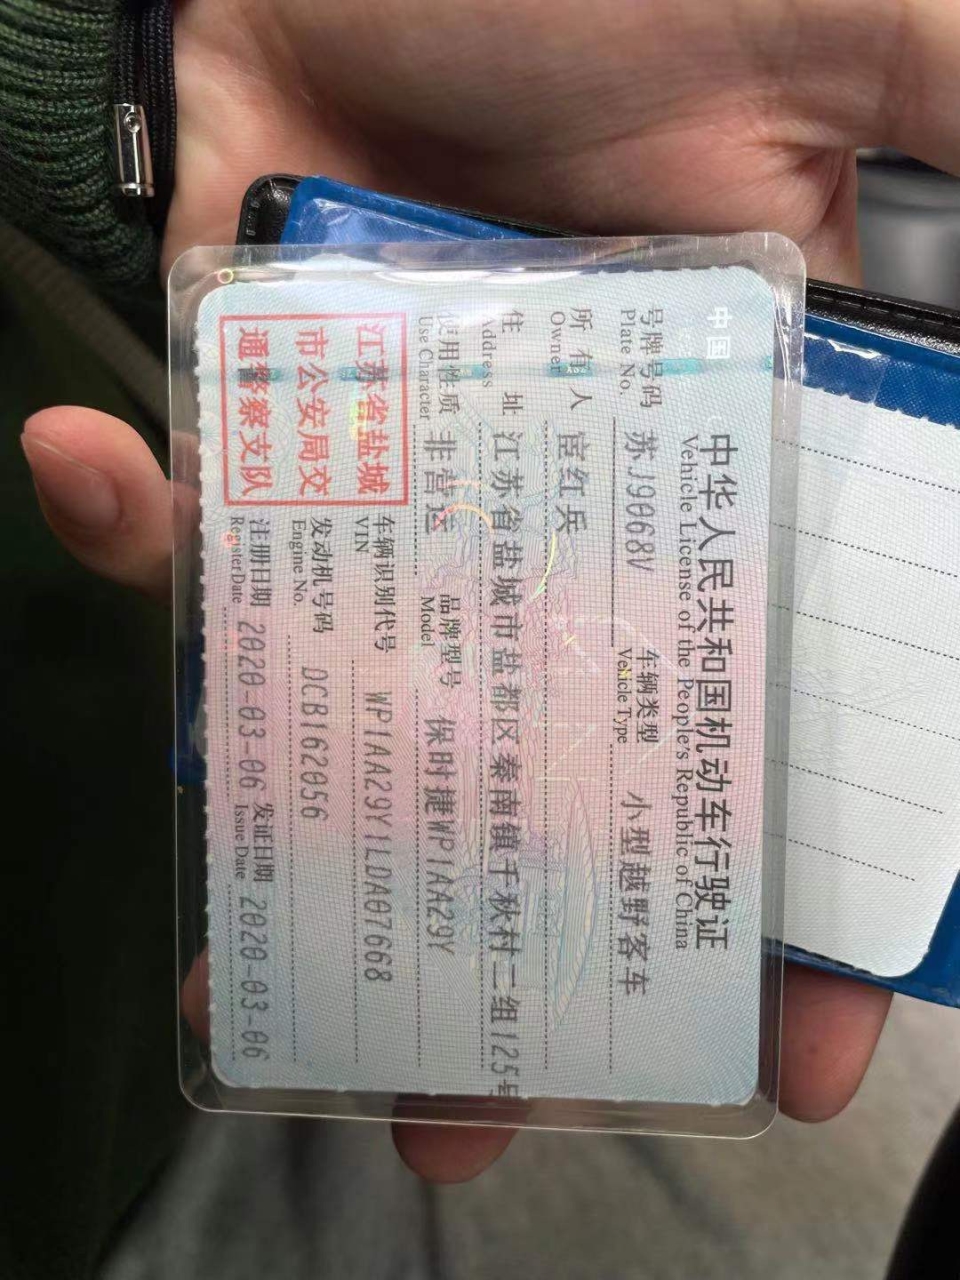 中国
中华人民共和国机动车行驶证
Vehicle License of the People's Republic of China
号牌号码 苏J9068V 车辆类型 小型越野客车
Plate No. Vehicle Type
所有人 宦红兵
Owner
住址 江苏省盐城市盐都区秦南镇千秋村二组125号
Address
使用性质 非营运 品牌型号 保时捷WP1AA29Y
Use Character Model
江苏省盐城
市公安局交
通警察支队
车辆识别代号 WP1AA29Y1LDA07668
VIN
发动机号码 DCB162056
Engine No.
注册日期 2020-03-06 发证日期 2020-03-06
Register Date Issue Date